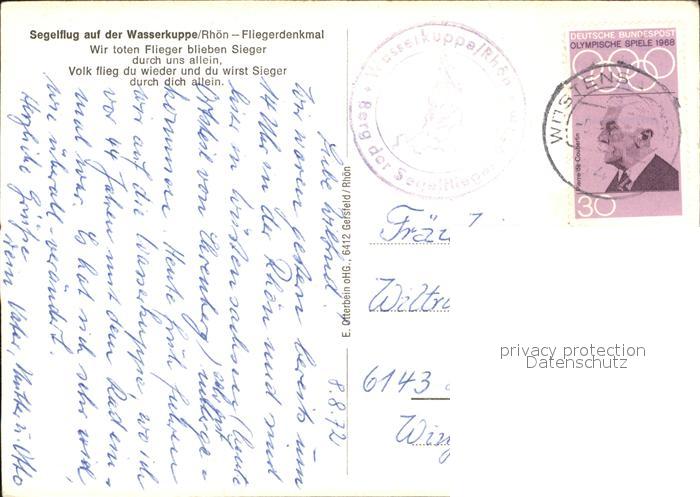 Segelflug auf der Wasserkuppe/Rhön – Fliegerdenkmal
Wir toten Flieger blieben Sieger
durch uns allein,
Volk flieg du wieder und du wirst Sieger
durch dich allein.
8.8.72
Liebe
wir waren gestern bereits um
14 Uhr in der Rhön und sind
hier in Wüstensachsen (heute
von Ehrenberg) sehr gut
kommen. Heute früh fuhren
wir auf die Wasserkuppe wo ich
vor 44 Jahren mit dem Rad
mal war. Es hat sich sehr viel,
wie überall verändert.
Herzliche Grüße
dein Vater, Mutter u. Otto
E. Otterbein oHG., 6412 Gersfeld/Rhön
Wasserkuppe/Rhön
Berg der Segelflieger
DEUTSCHE BUNDESPOST
OLYMPISCHE SPIELE 1968
Pierre de Coubertin
30
WÜSTENS
Fräu
Wiltru
6143
privacy protection
Datenschutz